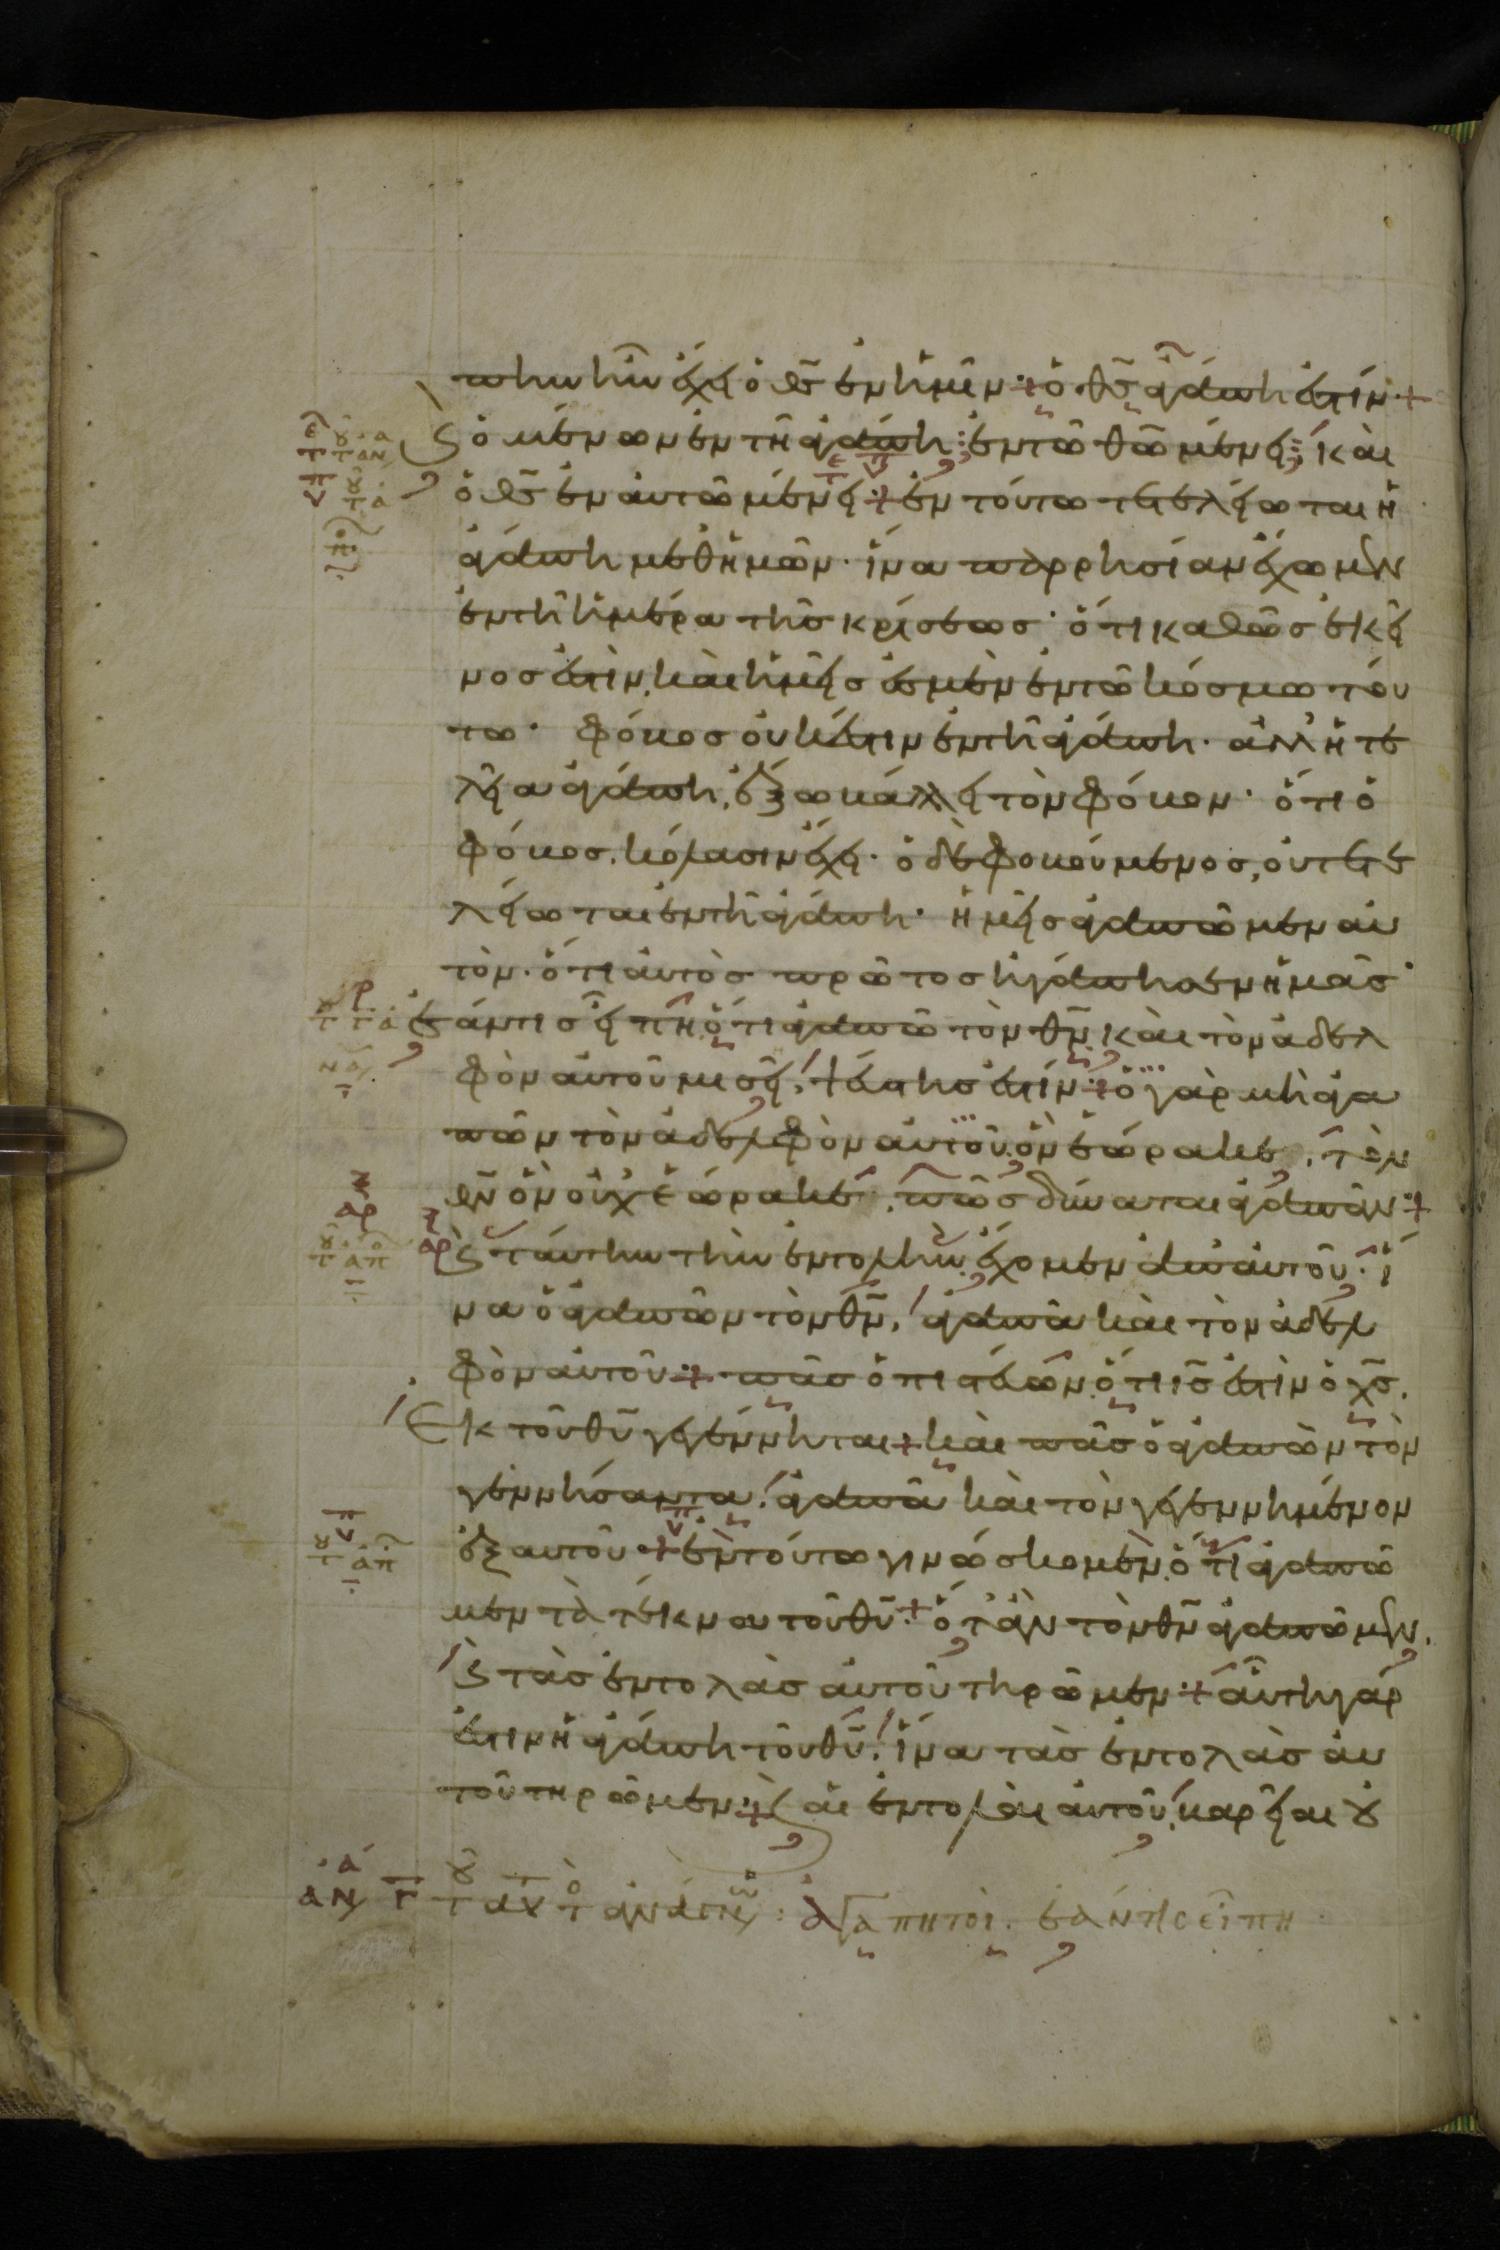 πην ἣν ἔχει ὁ θς ἐν ἡμῖν · ὁ θς ἀγάπη ἐστίν
καὶ ὁ μένων ἐν τῆ ἀγάπη · ἐν τῶ θῶ μένει · καὶ
ὁ θς ἐν αὐτῶ μένει · ἐν τούτω τετελείωται ἡ
ἀγάπη μεθ' ἡμῶν · ἵνα παρρησίαν ἔχωμεν
ἐν τῆ ἡμέρα τῆς κρίσεως · ὅτι καθὼς ἐκεῖ
νος ἐστὶν, καὶ ἡμεῖς ἐσμὲν ἐν τῶ κόσμω τού
τω · φόβος οὐκ ἔστιν ἐν τῆ ἀγάπη · ἀλλ' ἡ τε
λεία ἀγάπη, ἔξω βάλλει τὸν φόβον · ὅτι ὁ
φόβος, κόλασιν ἔχει · ὁ δὲ φοβούμενος, οὐ τετε
λείωται ἐν τῆ ἀγάπη · ἡμεῖς ἀγαπῶμεν αὐ
τὸν · ὅτι αὐτὸς πρῶτος ἠγάπησεν ἡμᾶς ·
ἐάν τις εἴπη ὅτι ἀγαπῶ τὸν θν, καὶ τὸν ἀδελ
φὸν αὐτοῦ μισεῖ, ψεύστης ἐστίν · ὁ γὰρ μὴ ἀγα
πῶν τὸν ἀδελφὸν αὐτοῦ ὃν ἑώρακε, τὸν
θν ὃν οὐχ ἑώρακε, πῶς δύναται ἀγαπᾶν
καὶ ταύτην τὴν ἐντολὴν ἔχομεν ἀπ' αὐτοῦ · ἵ
να ὁ ἀγαπῶν τὸν θν, ἀγαπᾶ καὶ τὸν ἀδελ
φὸν αὐτοῦ · πᾶς ὁ πιστεύων ὅτι ις ἐστὶν ὁ χς,
Ἐκ τοῦ θυ γεγέννηται · καὶ πᾶς ὁ ἀγαπῶν τὸν
γεννήσαντα, ἀγαπᾶ καὶ τὸν γεγεννημένον
ἐξ αὐτοῦ · ἐν τούτω γινώσκομεν ὅτι ἀγαπῶ
μεν τὰ τέκνα τοῦ θυ · ὅτ' ἂν τὸν θν ἀγαπῶμεν,
καὶ τὰς ἐντολὰς αὐτοῦ τηρῶμεν · αὕτη γάρ
ἐστιν ἡ ἀγάπη τοῦ θυ, ἵνα τὰς ἐντολὰς αὐ
τοῦ τηρῶμεν · καὶ αἱ ἐντολαὶ αὐτοῦ, βαρεῖαι οὐ
ἀγαπητοὶ · ἐάν τις εἴπη